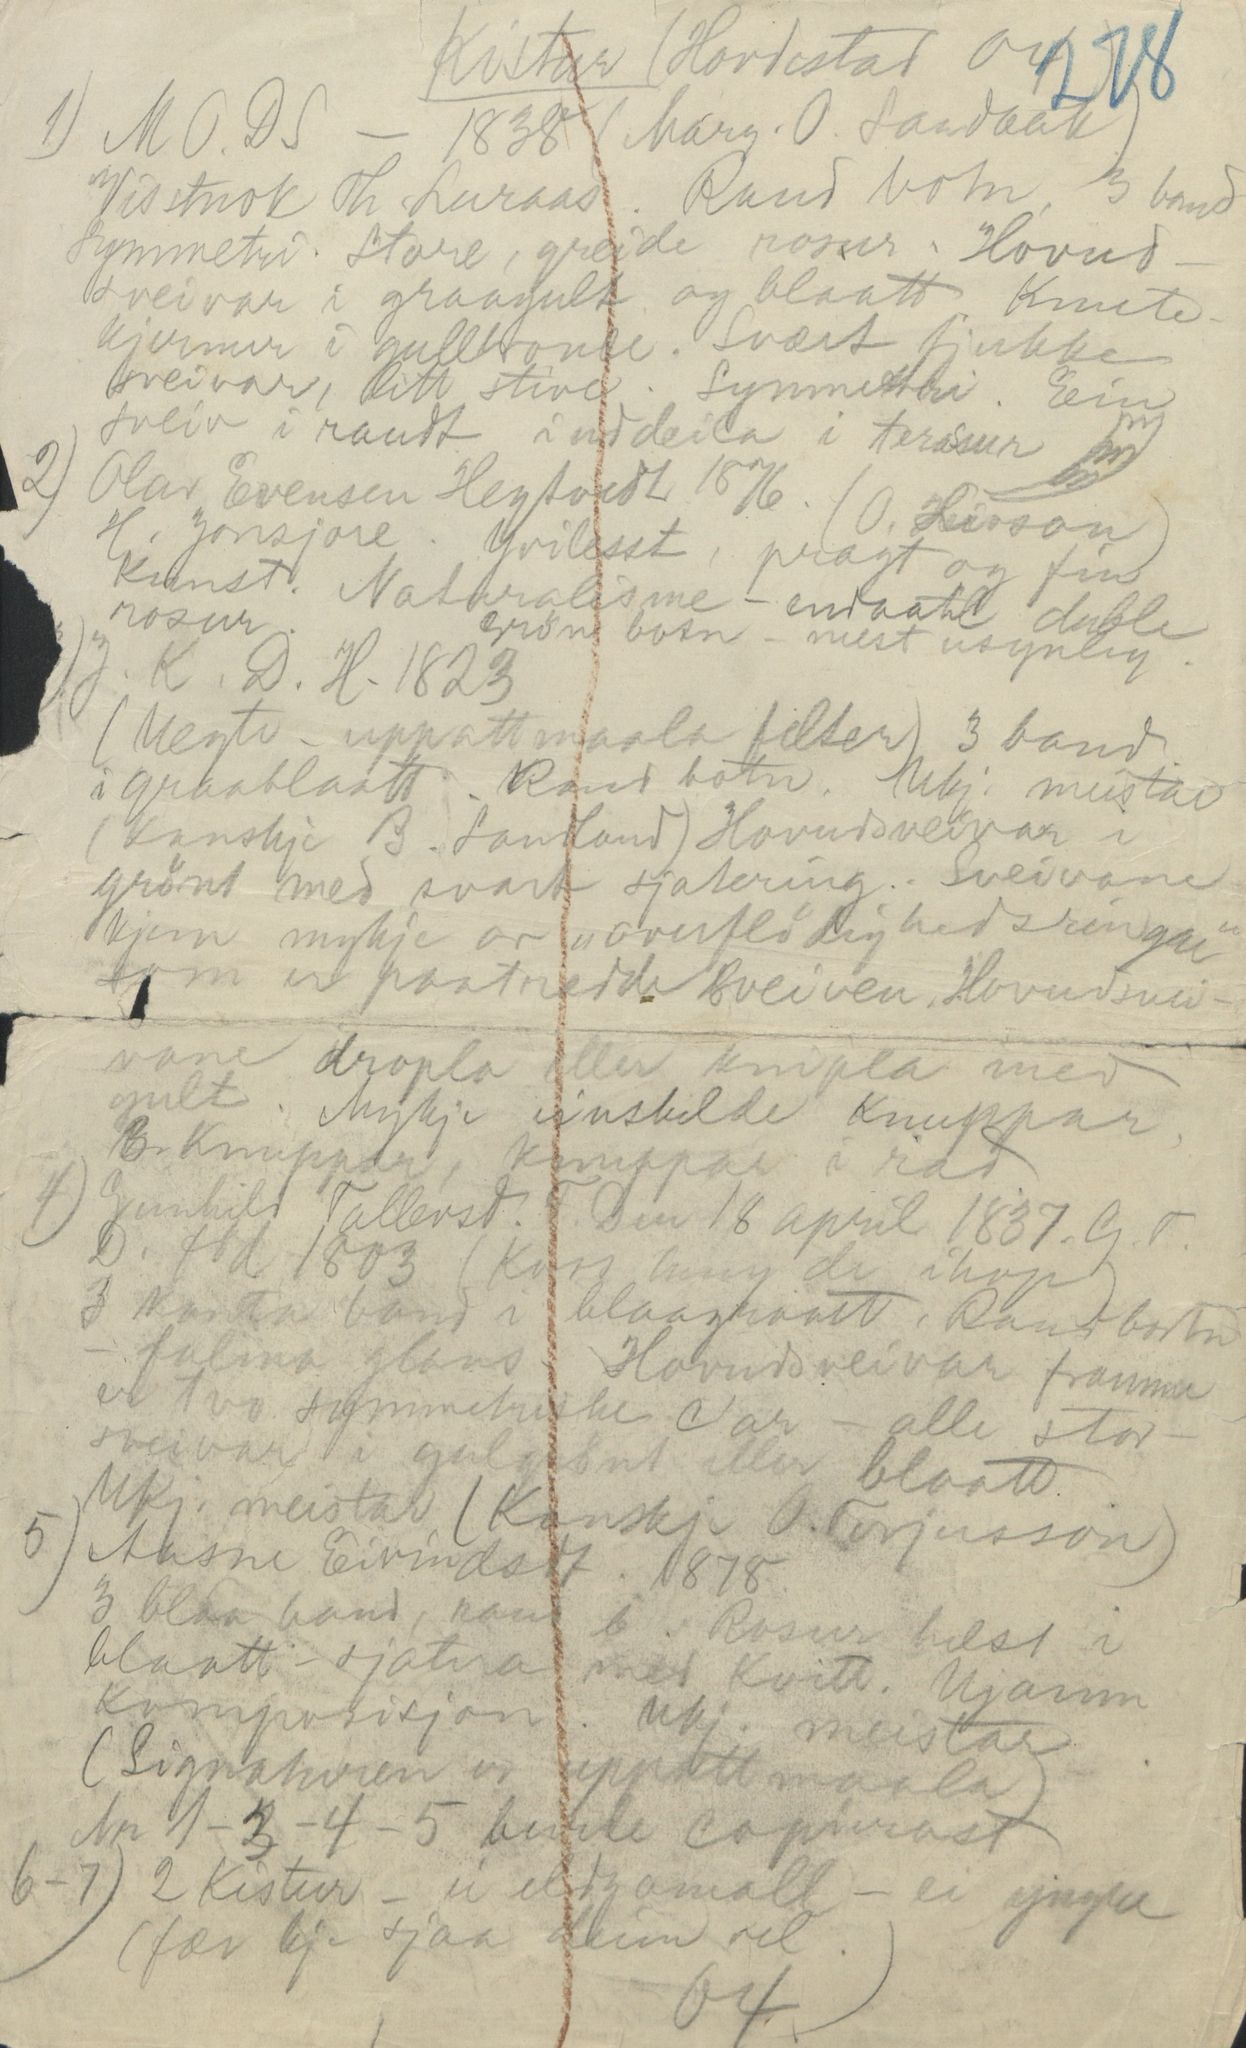 Kistur (Hovdestad 04)
278
1) M. O. D S – 1838 (Marg. O. Sandaak)
Visstnok Th. Luraas. Raud botn, 3 band
Symmetri. Store, greide rosur. Hovud-
sveivar i graagult og blaatt. Knute-
kjernur i gullbronse. Svært tjukke
sveivar, litt stive. Symmetri. Ein
sveiv i raudt inddeila i
2) Olav Evensen Hegtvedt 1876. (O.
H. Jonsjore. Yvilesst, pragt og fin
kunst. Naturalisme – endaatil duble
rosur. Grön botn – mest usynleg.
3) J. K. D. H. 1823
(Negti – uppattmaala felter) 3 band
i graablaatt. Raud botn. Ukj. meistar
(Kanskje B. Sandland) Hovudsveivar i
grönt med svart sjatering. Sveivane
kjem mykje or "overflödighedsringar"
som er paatredde sveiven. Hovudsvei-
vane dropla eller knipla med
gult. Mykje einskilde knuppar,
B. Knuppar, knuppar i rad
4) Gunhild Tallevsd. T. Den 18 april 1837. G. T.
D. fdd 1803 (Korr heng de ihop)
3 kanta band i blaagraatt. Raud botn
– falma glans. Hovudsveivar framme
er tvo symmetriske C'ar – alle stor-
sveivar i gulgrönt eller blaatt.
Ukj. meistar (Kanskje O. Terjusson)
5) Aasne Eivindsdt. 1878.
3 blaa band, raud b. Rosur helst i
blaatt – sjatera med kvitt. Ujamn
komposisjon. Ukj. meistar
(Signaturen er uppattmaala)
Nr 1 – 3 – 4 – 5 burde copierast
6–7) 2 Kistur – ei eldgamall – ei yngre
(fær kje sjaa deim vel.)
04.